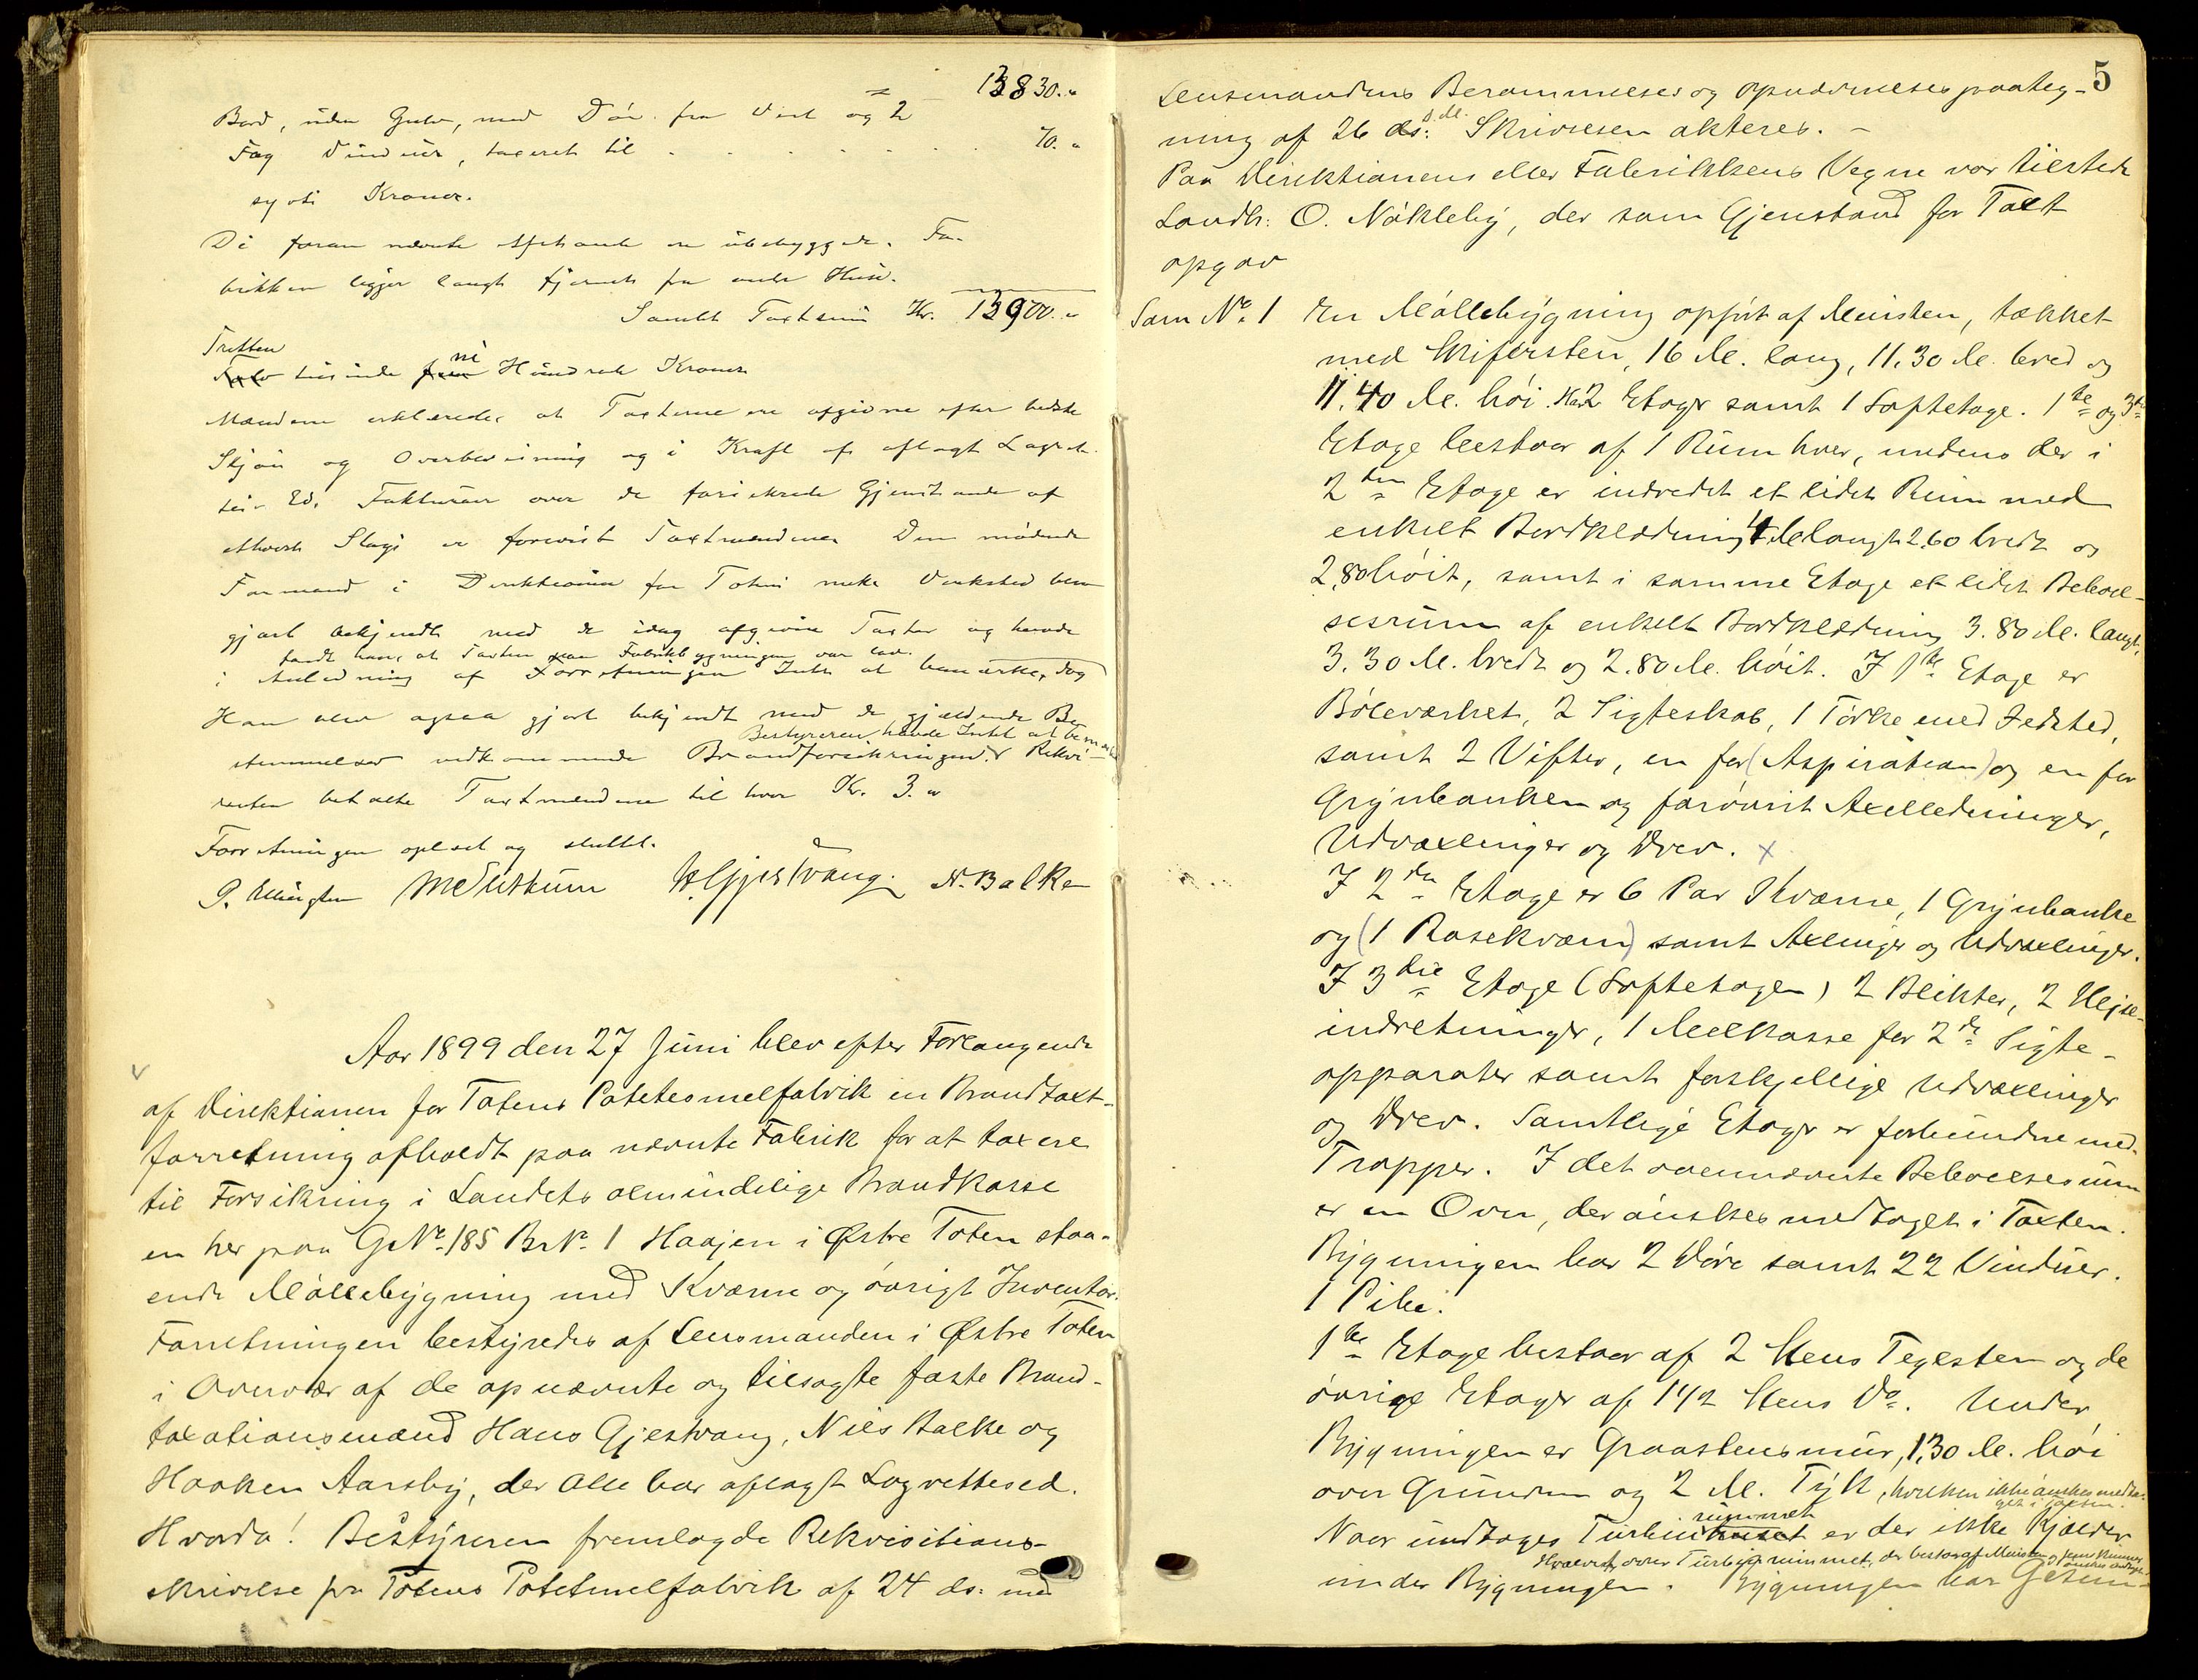 13830.-
Bord, uden Gulv, med Dör fra Vest og 2
Fag Vinduer, taxeret til . . . . . . . 70.-
sytti Kroner.
De foran nævnte ere ubebyggede. Fa-
brikken ligger langt fjernet fra andre Huse.
Samlet Taxtsum Kr. 13900.-
Tretten
tusinde ni Hundrede Kroner
Mændene erklærede, at Taxterne ere afgivne efter bedste
Skjön og Overbevisning og i Kraft af aflagt Lagret-
tes Ed. Fakturaer over de forsikrede Gjenstande af
ethvert Slags er forevist Taxtmændene. Den mödende
Formand i Direktionen for Totens mek. Verksted blev
gjort bekjendt med de idag afgivne Taxter og havde
fandt han, at Taxten paa Fabrikbygningen var lav.
i Anledning af Forretningen Intet at bemærke, dog
Han blev ogsaa gjort bekjendt med de gjældende Be-
Bestyreren havde Intet at bemærke
stemmelser vedkommende Brandforsikringen. Rekvi-
renten betalte Taxtmændene til hver Kr. 3.-
Forretningen oplæst og sluttet.
H. Gjestvang. N. Balke
Aar 1899 den 27 Juni blev efter Forlangende
af Direktionen for Totens Potetesmelfabrik en Brandtaxt-
forretning afholdt paa nævnte Fabrik for at taxere
til Forsikring i Landets almindelige Brandkasse
en her paa G.No. 185 Br.No. 1 Haajen i Østre Toten staa-
ende Möllebygning med Kværne og övrigt Inventar.
Forretningen bestyredes af Lensmanden i Østre Toten
i Overvær af de opnævnte og tilsagte faste Brand-
taxationsmænd Hans Gjestvang, Niels Balke og
Haaken Aarsby, der Alle har aflagt Lagrettesed.
Hvorda! Bestyreren fremlagde Rekvisitions-
skrivelse fra Totens Potetmelfabrik af 24 ds: med
5
Lensmandens Berammelses og opnævnelsespaateg-
ning af 26 ds: Skrivelsen akteres. -
Paa Direktionens eller Fabrikkens Vegne var tilstede
Landh: O. Nökleby, der som Gjenstand for Taxt
opgav
Som No. 1 En Möllebygning opfört af Mursten, tækket
med Skifersten, 16 M. lang, 11.30 M. bred og
11.40 M. höi. Har 2 Etager samt 1 Loftetage. 1ste og 3die
Etage bestaar af 1 Rum hver, medens der i
2den Etage er indredet et lidet Rum med
enkelt Bordklædning 4 M. langt 2.60 bredt og
2.80 höit, samt i samme Etage et lidet Beboel-
sesrum af enkelt Bordklædning 3.80 M. langt,
3.30 M. bredt og 2.80 M. höit. I 1ste Etage er
Böleværket, 2 Sigteskab, 1 Törke med Ildsted,
samt 2 Vifter, en for (Aspiration) og en for
Grynbanken og forövrit Axelledninger,
Udvaxlinger og Drev. x
I 2den Etage er 6 Par Kværne, 1 Grynbanke
og (1 Rasekværn) samt Axlinger og Udvaxlinger.
I 3die Etage (Loftetagen) 2 Beikter, 2 Hejse-
indretninger, 1 Melkasse for 2de Sigte-
apparater samt forskjellige Udvaxlinger
og Drev. Samtlige Etager er forbundne med
Trapper. I det ovennævnte Beboelsesrum
er en Ovn, der önskes medtaget i Taxten.
Bygningen har 2 Döre samt 22 Vinduer.
1 Pibe.
1ste Etage bestaar af 2 Stens Teglsten og de
övrige Etager af 1 1/2 Stens Do. Under
Bygningen er Graastensmur, 1.30 M. höi
over Grunden og 2 M. Tyk, hvilken ikke önskes medta-
get i Taxten.
rummet
Naar undtages Turbinhuset er der ikke Kjælder
Hvælvet over Turbinrummet, der bestaar af Mursten og
under Bygningen. Bygningen har Gesim-